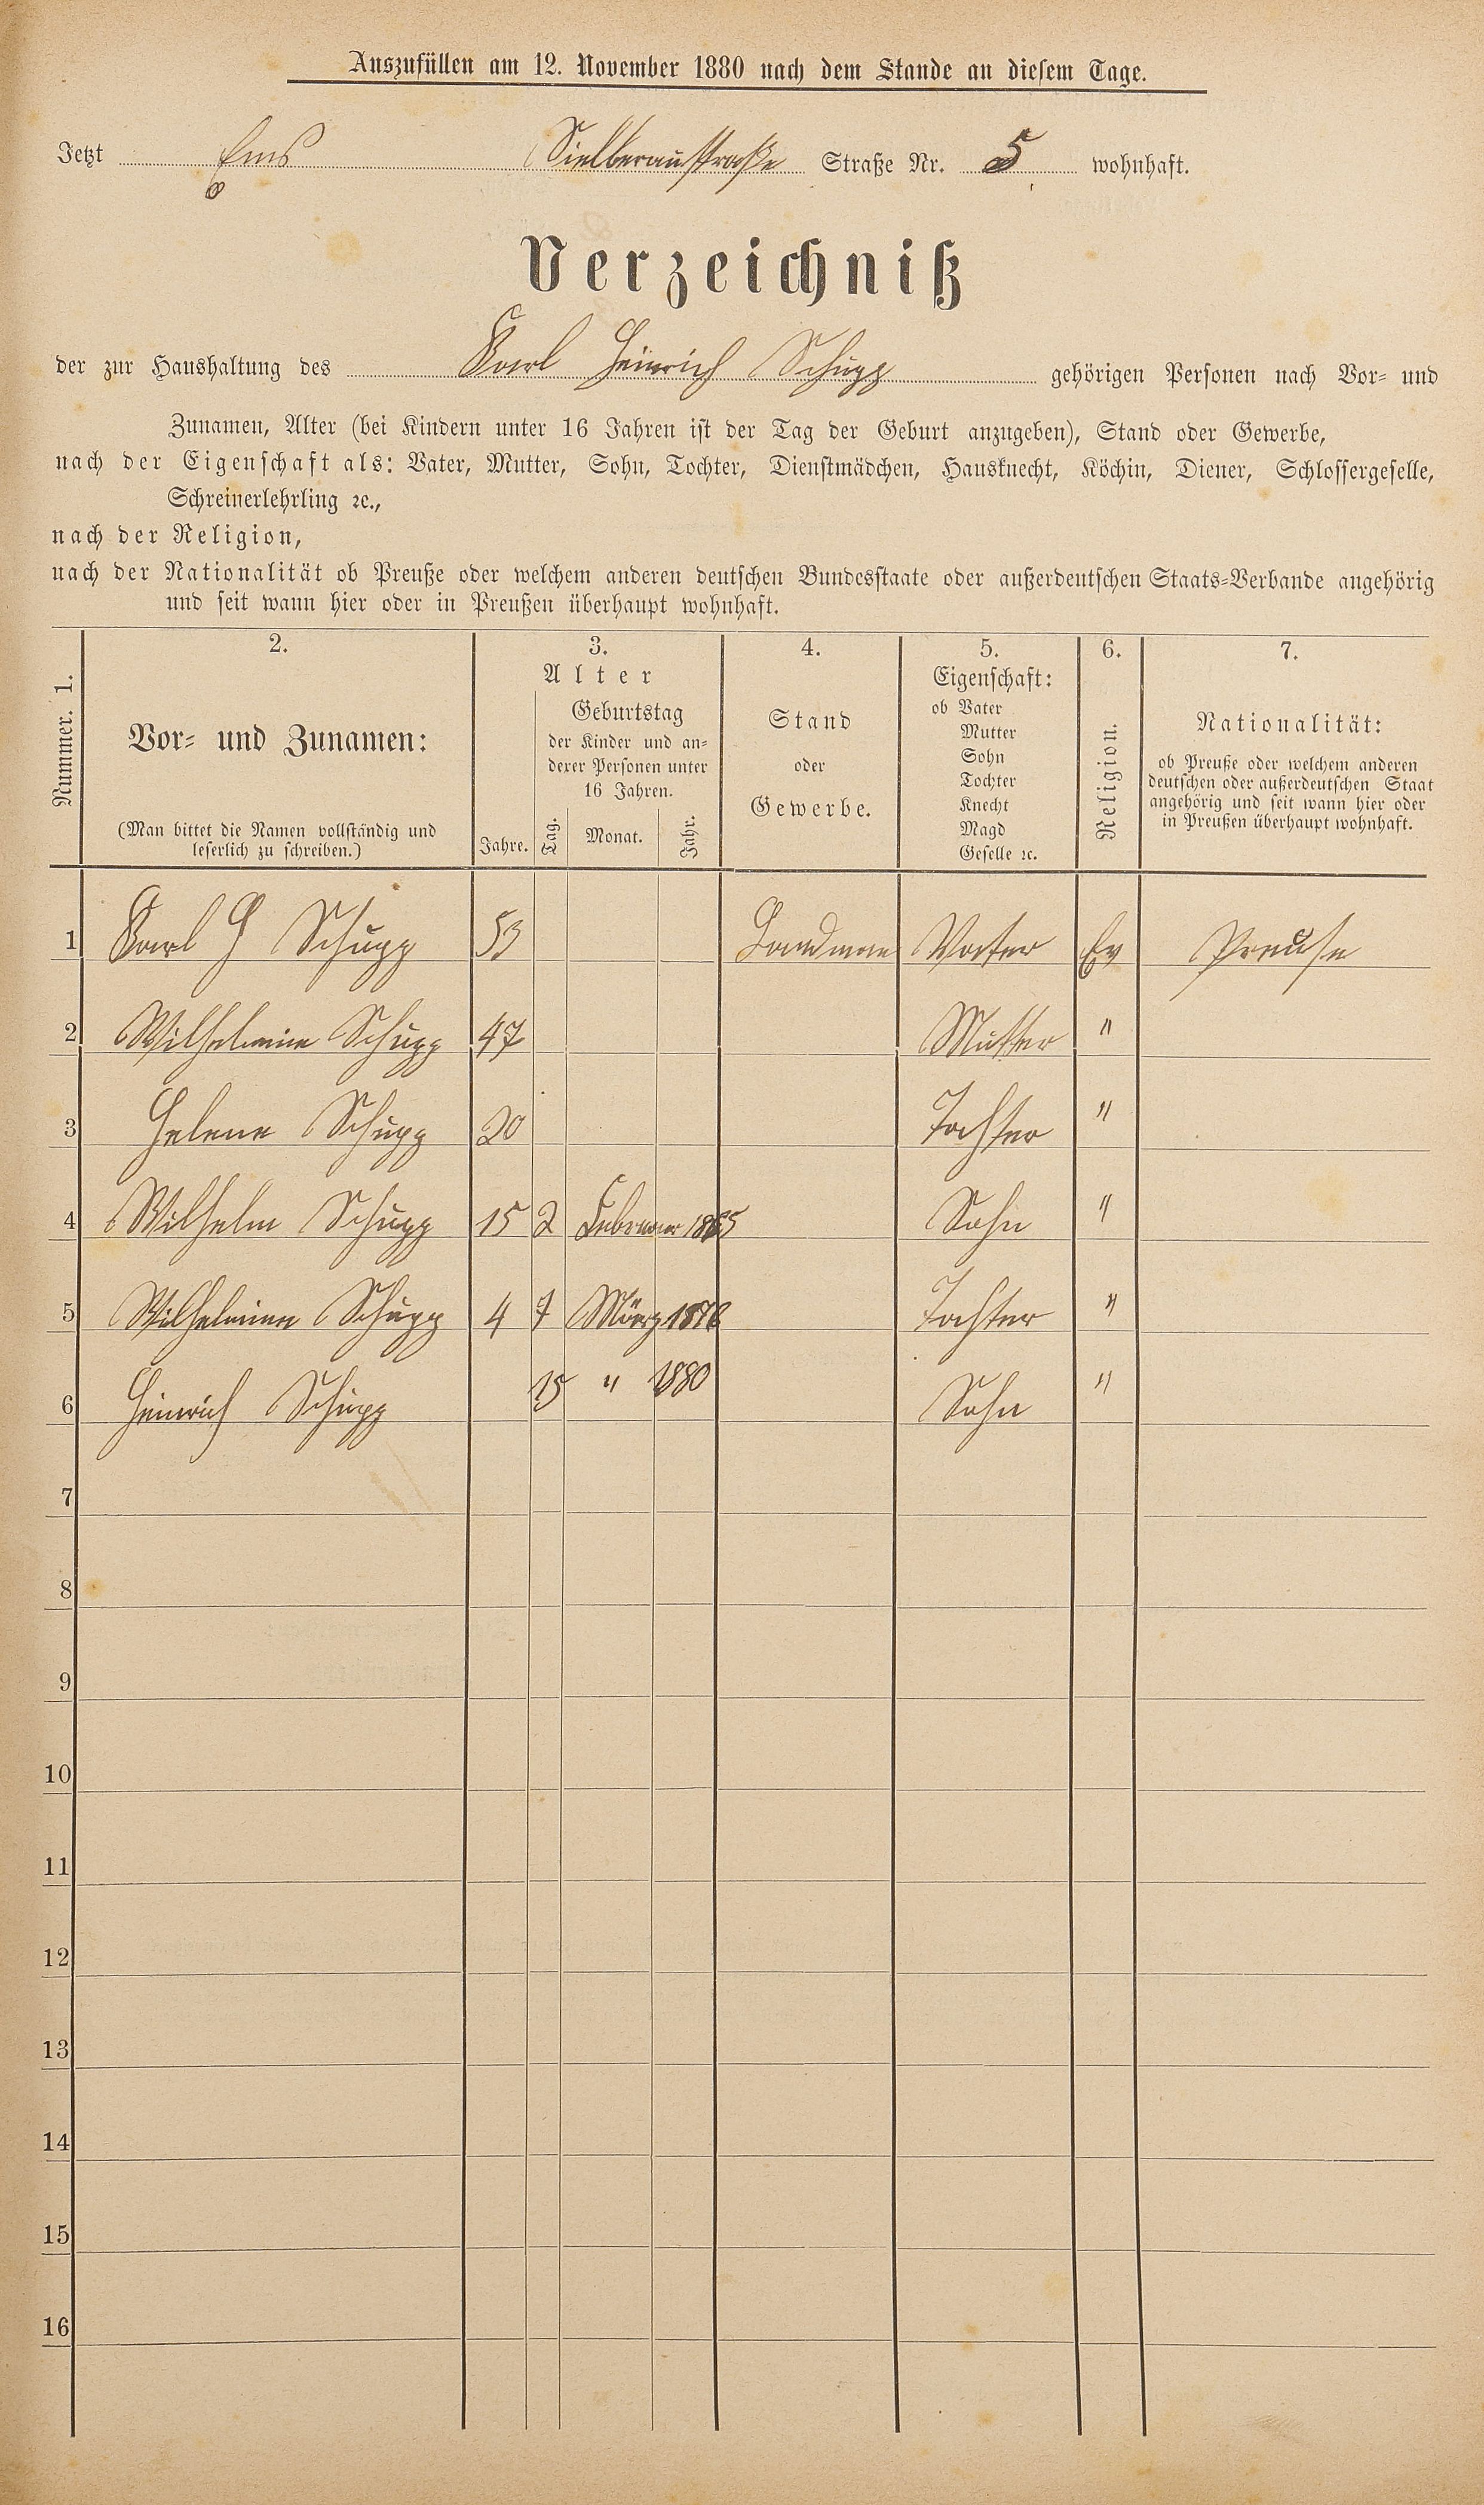 Auszufüllen am 12. November 1880 nach dem Stande an diesem Tage.
Jetzt Ems Straße Nr. 5 wohnhaft.
Verzeichniß
der zur Haushaltung des Karl Heinrich Schupp gehörigen Personen nach Vor- und
Zunamen, Alter (bei Kindern unter 16 Jahren ist der Tag der Geburt anzugeben), Stand oder Gewerbe,
nach der Eigenschaft als: Vater, Mutter, Sohn, Tochter, Dienstmädchen, Hausknecht, Köchin, Diener, Schlossergeselle,
Schreinerlehrling ꝛc.,
nach der Religion,
nach der Nationalität ob Preuße oder welchem anderen deutschen Bundesstaate oder außerdeutschen Staats-Verbande angehörig
und seit wann hier oder in Preußen überhaupt wohnhaft.
Nummer. 1.
2.
Vor- und Zunamen:
(Man bittet die Namen vollständig und
leserlich zu schreiben.)
3.
Alter
Jahre.
Geburtstag
der Kinder und an-
derer Personen unter
16 Jahren.
Tag. Monat. Jahr.
4.
Stand
oder
Gewerbe.
5.
Eigenschaft:
ob Vater
Mutter
Sohn
Tochter
Knecht
Magd
Geselle ꝛc.
6.
Religion.
7.
Nationalität:
ob Preuße oder welchem anderen
deutschen oder außerdeutschen Staat
angehörig und seit wann hier oder
in Preußen überhaupt wohnhaft.
1 Karl H Schupp 53 Landman Vater Ev Preuse
2 Wilhelmine Schupp 47 Mutter "
3 Helene Schupp 20 Tochter "
4 Wilhelm Schupp 15 2 Februar 1865 Sohn "
5 Wilhelmine Schupp 4 7 März 1876 Tochter "
6 Heinrich Schupp 15 " 1880 Sohn "
7
8
9
10
11
12
13
14
15
16